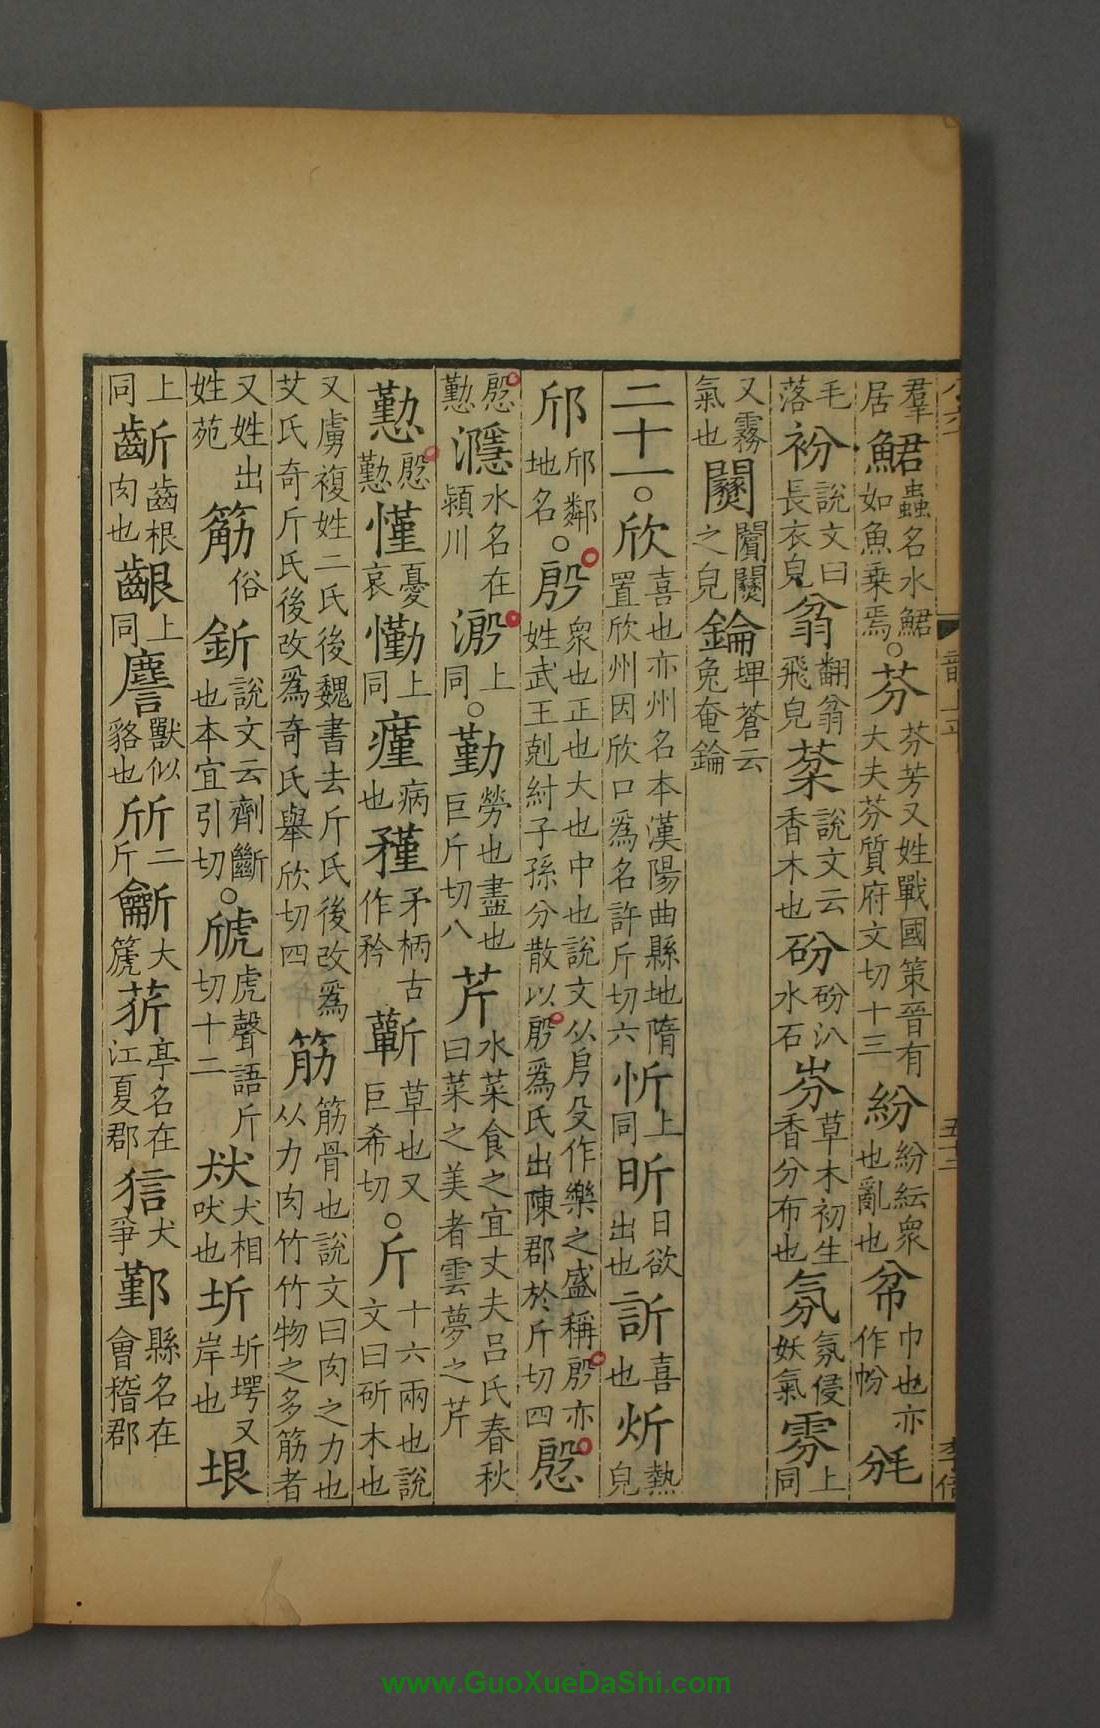 羣居𩷏蟲名水𩷏如魚乗焉○芬芬芳又姓戰國策晉有大夫芬質府文切十三紛紛紜衆也亂也帉巾也亦作帉㲈
毛落衯說文曰長衣皃翁翻翁飛皃棻說文云香木也砏砏汃水石岎草木初生香分布也氛氛侵妖氣雰上同
又霧氣也䦧䦧之皃錀埤蒼云兔奄錀
二十一○欣喜也亦州名本漢陽曲縣地隋置欣州因欣口爲名許斤切六忻上同昕日欲出也訢喜也炘熱皃
邤邤鄰地名○殷衆也正也大也中也說文从㐆殳作樂之盛稱殷亦姓武王剋紂子孫分散以殷爲氏出陳郡於斤切四慇
慇懃濦水名在潁川溵上同○勤勞也盡也巨斤切八芹水菜食之宜丈夫呂氏春秋曰菜之美者雲夢之芹
懃慇懃慬憂哀懄上同瘽病也矜矛柄古作矜蘄草也又巨希切○斤十六兩也說文曰斫木也
又虜複姓二氏後魏書去斤氏後改爲艾氏奇斤氏後改爲奇氏舉欣切四筋筋骨也說文曰肉之力也从力肉竹竹物之多筋者
又姓出姓苑䈥俗釿說文云劑斷也本宜引切○虓虎聲語斤切十二㹜犬相吠也圻圻堮又岸也垠
上同齗齒根肉也齦上同䖐獸似貉也斦二斤䶳大箎菥亭名在江夏郡狺犬爭鄞縣名在會稽郡
韻上平
五十三
李倍
www.GuoXueDaShi.com